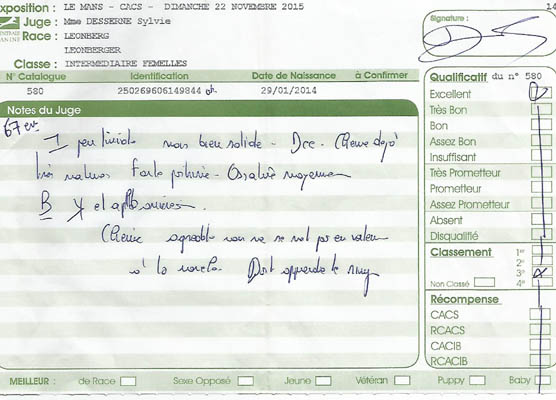 Exposition : LE MANS - CACS - DIMANCHE 22 NOVEMBRE 2015
Juge : Mme DESSERNE Sylvie
Race : LEONBERG
LEONBERGER
Classe : INTERMEDIAIRE FEMELLES
Signature :
N° Catalogue Identification Date de Naissance à Confirmer
580 250269606149844 ch. 29/01/2014
Notes du Juge
67 cm
peu timide mais bien solide - Dcc - Chienne déjà
très mature Forte poitrine - Ossature moyenne
B et aplombs
Chienne agréable mais ne se met pas en valeur
à la Doit apprendre le ring
Qualificatif du n° 580
Excellent
Très Bon
Bon
Assez Bon
Insuffisant
Très Prometteur
Prometteur
Assez Prometteur
Absent
Disqualifié
Classement 1er
2e
3e
Non Classé 4e
Récompense
CACS
RCACS
CACIB
RCACIB
MEILLEUR : de Race Sexe Opposé Jeune Vétéran Puppy Baby